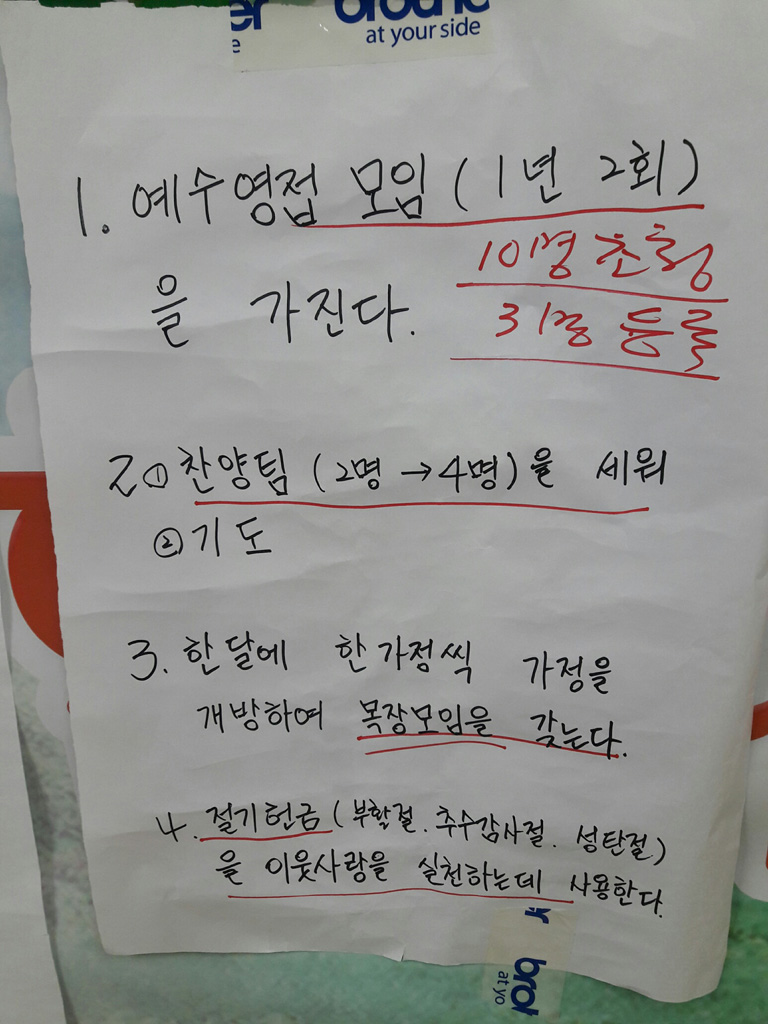 er brother
e at your side
1. 예수영접 모임 (1년 2회)
10명 초청
을 가진다.
3명 등록
2 ① 찬양팀 (2명 → 4명)을 세워
② 기도
3. 한달에 한가정씩 가정을
개방하여 목장모임을 갖는다.
4. 절기헌금 (부활절. 추수감사절. 성탄절)
을 이웃사랑을 실천하는데 사용한다.
er bro
at yo